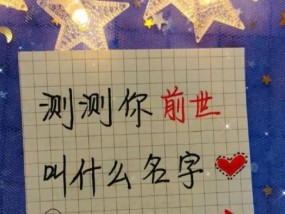 测测你前世
叫什么名字